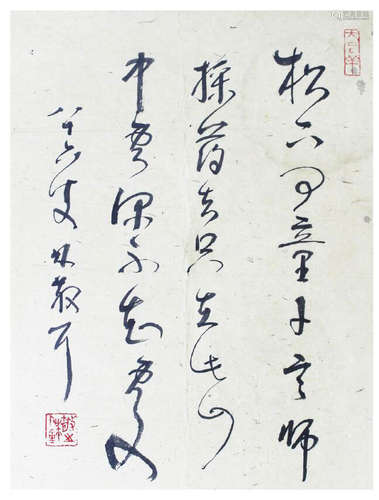 松下问童子言师
採药去只在此山
中云深不知云处
八十六叟林散耳